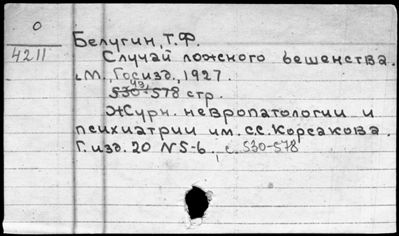 О
4211
Белугин, Т.Ф.
Случай ложного бешенства.
М., Госизд., 1927.
530-578 стр.
Журн. невропатологии и
психиатрии им. С.С. Корсакова.
Г. изд. 20 N 5-6, с. 530-578